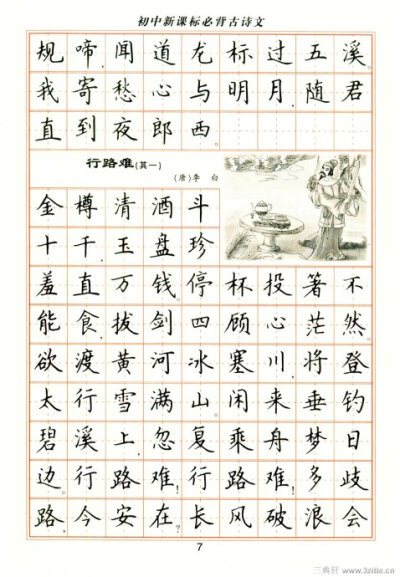 初中新课标必背古诗文
规啼,闻道龙标过五溪。
我寄愁心与明月,随君
直到夜郎西。
行路难(其一)
(唐)李 白
金樽清酒斗
十千,玉盘珍
羞直万钱。停杯投箸不
能食,拔剑四顾心茫然。
欲渡黄河冰塞川,将登
太行雪满山。闲来垂钓
碧溪上,忽复乘舟梦日
边。行路难!行路难!多歧
路。今安在?长风破浪会
7
三典轩 www.3zitie.cn